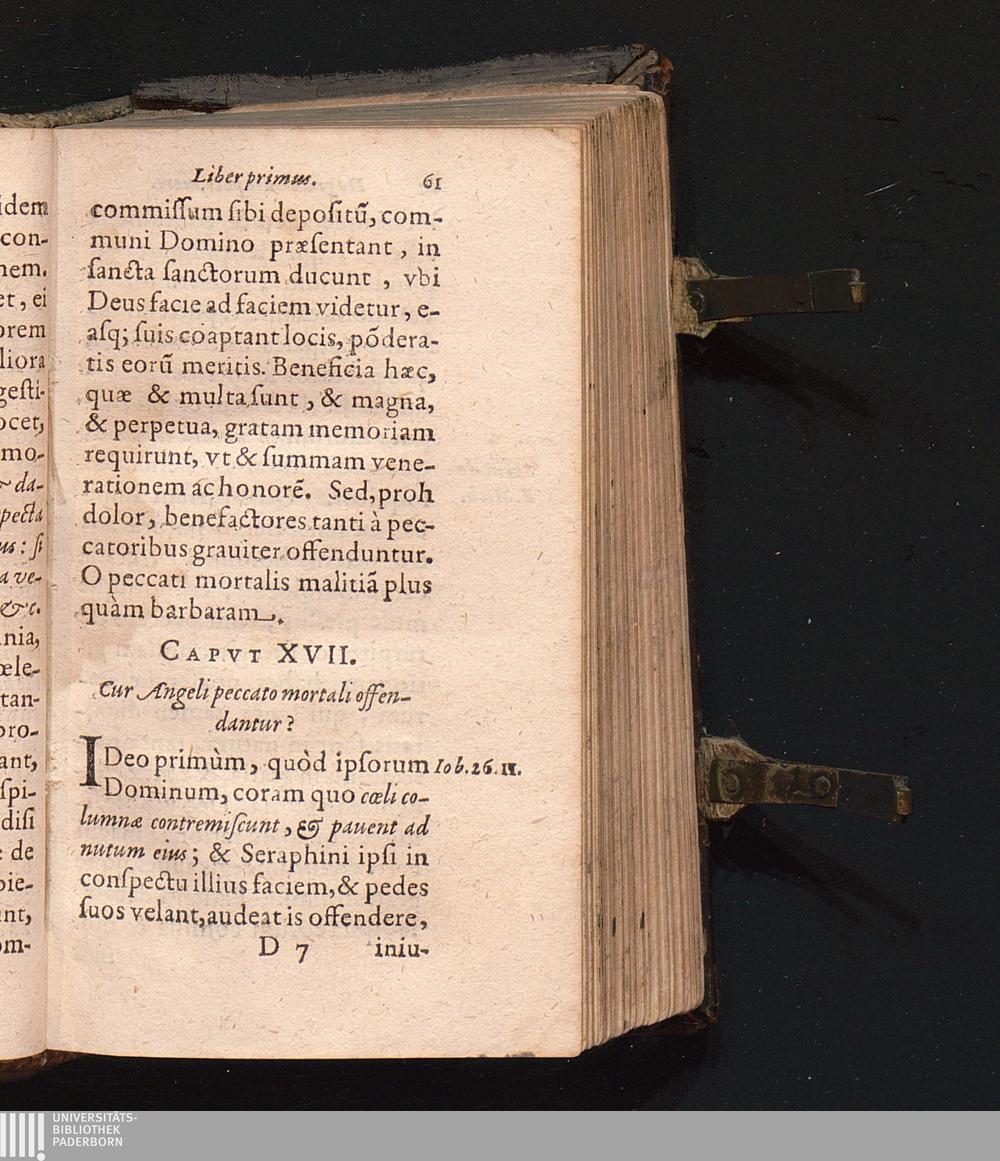 idem
con-
nem.
et, ei
orem
liora
gesti-
ocet,
mo-
da-
pecta
us: si
a ve-
&c.
nia,
œle-
tan-
pro-
ant,
spi-
disi
e de
pie-
unt,
om-
Liber primus. 61
commiſſum ſibi depoſitũ, com-
muni Domino præſentant, in
ſancta ſanctorum ducunt, vbi
Deus facie ad faciem videtur, e-
aſq; ſuis coaptant locis, põdera-
tis eorũ meritis. Beneficia hæc,
quæ & multa ſunt, & magna,
& perpetua, gratam memoriam
requirunt, vt & ſummam vene-
rationem ac honorẽ. Sed, proh
dolor, benefactores tanti à pec-
catoribus grauiter offenduntur.
O peccati mortalis malitiã plus
quàm barbaram.
CAPVT XVII.
Cur Angeli peccato mortali offen-
dantur?
IDeo primùm, quòd ipſorum Iob. 26. 11.
Dominum, coram quo cœli co-
lumnæ contremiſcunt, & pauent ad
nutum eius; & Seraphini ipſi in
conſpectu illius faciem, & pedes
ſuos velant, audeat is offendere,
D 7 iniu-
UNIVERSITÄTS-
BIBLIOTHEK
PADERBORN